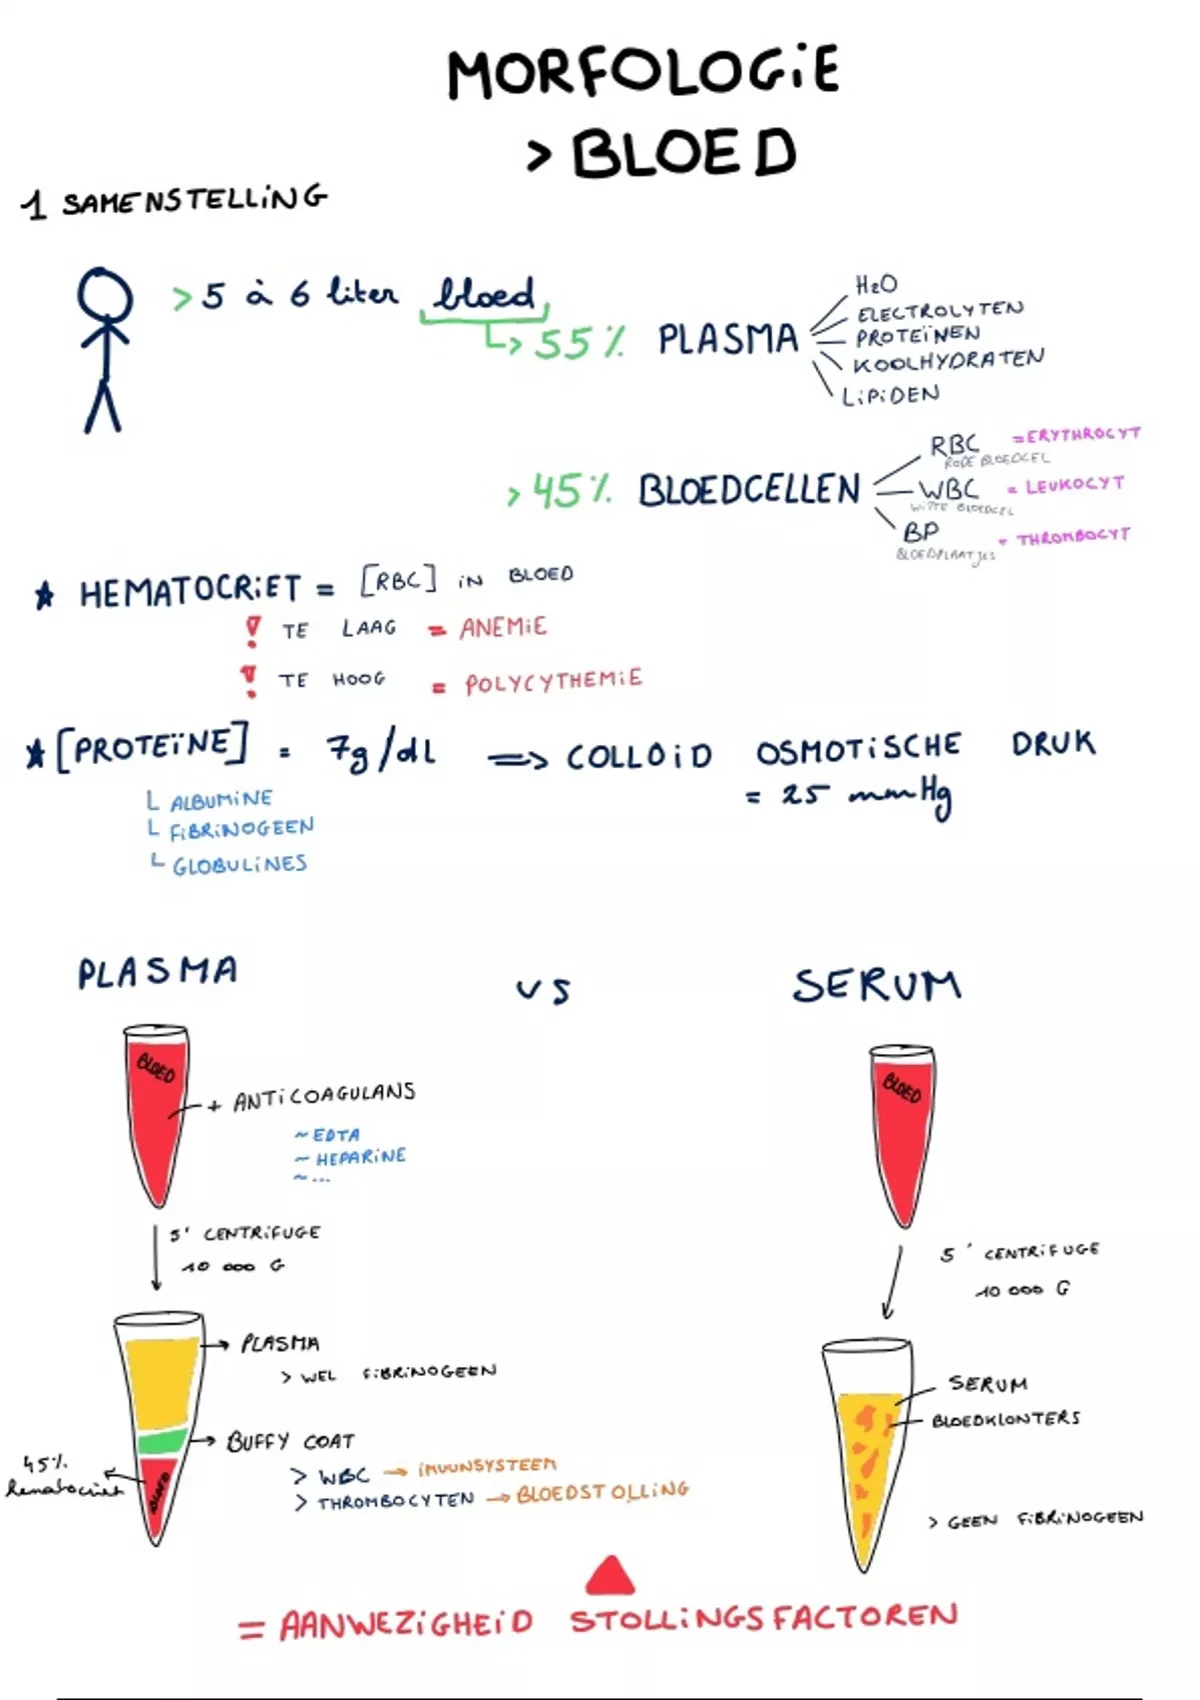 MORFOLOGIE
> BLOED
1 SAMENSTELLING
> 5 à 6 liter bloed
> 55% PLASMA
H2O
ELECTROLYTEN
PROTEÏNEN
KOOLHYDRATEN
LIPIDEN
> 45% BLOEDCELLEN
RBC = ERYTHROCYT
RODE BLOEDCEL
WBC = LEUKOCYT
WITTE BLOEDCEL
BP = THROMBOCYT
BLOEDPLAATJES
★ HEMATOCRIET = [RBC] IN BLOED
! TE LAAG = ANEMIE
! TE HOOG = POLYCYTHEMIE
★ [PROTEÏNE] = 7g/dL => COLLOID OSMOTISCHE DRUK
= 25 mmHg
ALBUMINE
FIBRINOGEEN
GLOBULINES
PLASMA vs SERUM
BLOED
+ ANTICOAGULANS
~ EDTA
~ HEPARINE
~ ...
5' CENTRIFUGE
10 000 G
→ PLASMA
> WEL FIBRINOGEEN
→ BUFFY COAT
> WBC → IMUUNSYSTEEM
> THROMBOCYTEN → BLOEDSTOLLING
45%
hematocriet
BLOED
BLOED
5' CENTRIFUGE
10 000 G
SERUM
BLOEDKLONTERS
> GEEN FIBRINOGEEN
= AANWEZIGHEID STOLLINGSFACTOREN